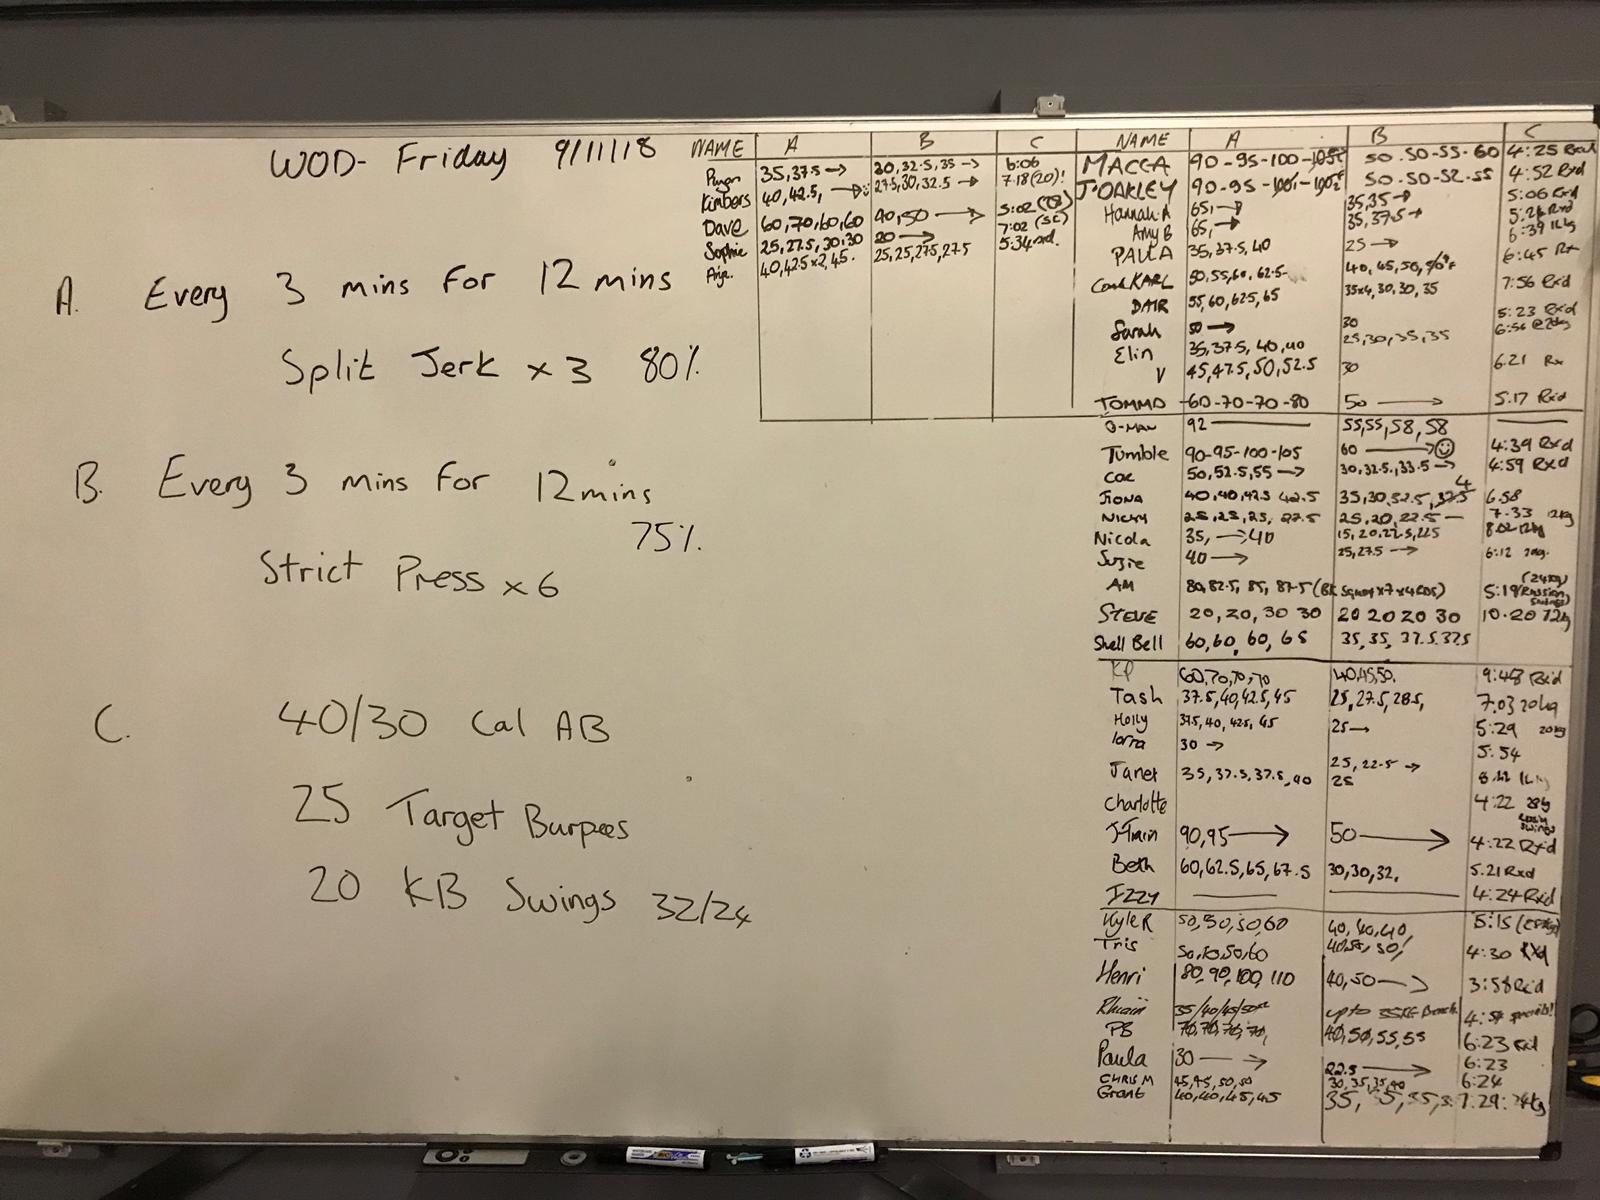 WOD- Friday 9/11/18
A. Every 3 mins for 12 mins
Split Jerk x 3 80%
B. Every 3 mins for 12 mins
75%
Strict Press x 6
C. 40/30 Cal AB
25 Target Burpees
20 KB Swings 32/24
NAME A B C
35,37.5→ 30,32.5,35→ 6:06
Kimbers 40,42.5,→ 27.5,30,32.5→ 7:18(20)!
Dave 60,70,60,60 40,50→ 5:02
Sophie 25,27.5,30,30 20→ 7:02 (SC)
40,42.5x2,45. 25,25,27.5,27.5 5:34
NAME A B C
MACCA 90-95-100- 50-50-55-60 4:25
J'OAKLEY 90-95- 50-50-52-55 4:52 Rxd
Hannah.A 65,→ 35,35→ 5:06 Rxd
Amy B 65,→ 35,37.5→
PAULA 35,37.5,40 25→ 6:39
KARL 50,55,60,62.5 40,45,50, 6:45 Rx
55,60,62.5,65 35x4,30,30,35 7:56 Rxd
Sarah 50→ 30 5:23 Rxd
Elin 35,37.5,40,40 25,30,35,35 6:56
V 45,47.5,50,52.5 30 6.21 Rx
TOMMO 60-70-70-80 50→ 5.17 Rxd
G-MAN 92 55,55,58,58
Tumble 90-95-100-105 60→☺ 4:39 Rxd
COE 50,52.5,55→ 30,32.5,33.5→ 4:59 Rxd
40,40,42.5 42.5 35,30,32.5, 4 6.58
NICKY 25,25,25,27.5 25,20,22.5— 7.33 12kg
Nicola 35,→40 15,20,22.5,22.5 8:02 12kg
Suzie 40→ 25,27.5→ 6:12
AM 80,82.5,85,87.5 (BK Squat x7 x4RDS) 5:19 (24kg) Russian Swings)
STEVE 20,20,30 30 20 20 20 30 10.20 12kg
Shell Bell 60,60,60,65 35,35,37.5,37.5
KP 60,70,70,70 40,45,50. 9:48 Rxd
Tash 37.5,40,42.5,45 25,27.5,28.5, 7.03 20kg
Holly 37.5,40,42.5,45 25→ 5:29 20kg
lorra 30→ 5:54
Janet 35,37.5,37.5,40 25,22.5→
25
Charlotte 4:22 28kg
swings
J-Train 90,95→ 50→ 4:22 Rxd
Beth 60,62.5,65,67.5 30,30,32, 5.21 Rxd
IZZY 4:24 Rxd
Kyle R 50,50,50,60 40,40,40, 5:15
Tris 50,50,50,60 4:30 Rxd
Henri 80,90,100,110 40,50→ 3:58 Rxd
35/40/45/50 up to 35KG Bench
PB 70,70,70,70, 40,50,55,55 6:23 Rxd
Paula 30→ 22.5→ 6:23
CHRIS M 45,45,50,50 30,35,35,40 6:24
Grant 40,40,45,45 35, 7:29: